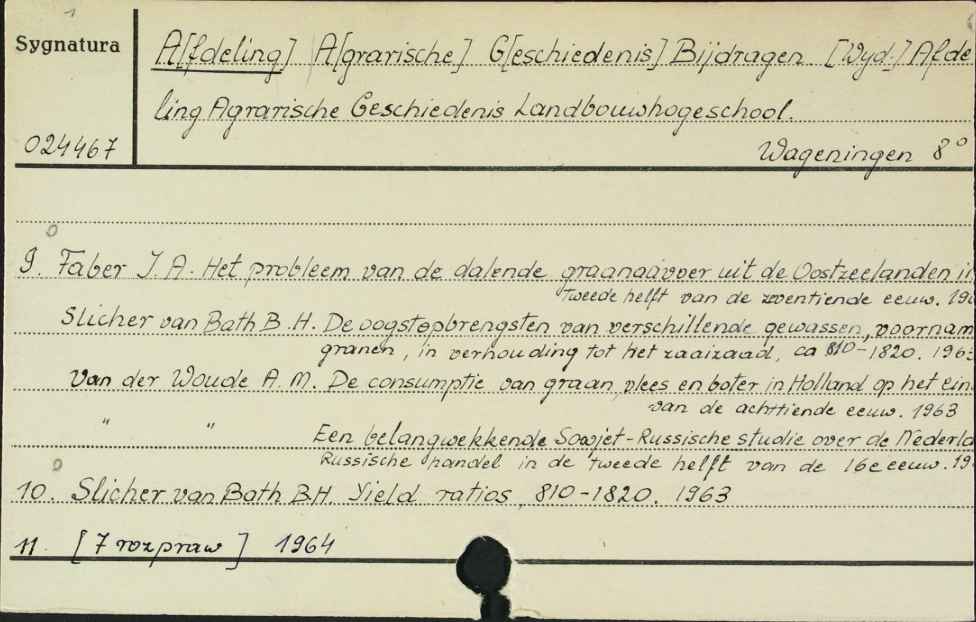 1
Sygnatura
A[fdeling] A[grarische] G[eschiedenis] Bijdragen [Wyd:] Afde
ling Agrarische Geschiedenis Landbouwhogeschool.
024467
Wageningen 8°
9. Faber J. A. Het probleem van de dalende graanaavoer uit de Oostzeelanden i
tweede helft van de zeventiende eeuw. 19
Slicher van Bath B. H. De oogstopbrengsten van verschillende gewassen, voornam
granen, in verhouding tot het zaaizaad, ca 810-1820. 196
Van der Woude A. M. De consumptie van graan, vlees en boter in Holland op het ein
van de achttiende eeuw. 1963
" " Een belangwekkende Sowjet-Russische studie over de Nederla
Russische handel in de tweede helft van de 16e eeuw. 19
10. Slicher van Bath B.H. Yield ratios, 810-1820. 1963
11 [7 rozpraw] 1964